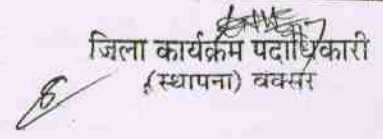 जिला कार्यक्रम पदाधिकारी
(स्थापना) बक्सर